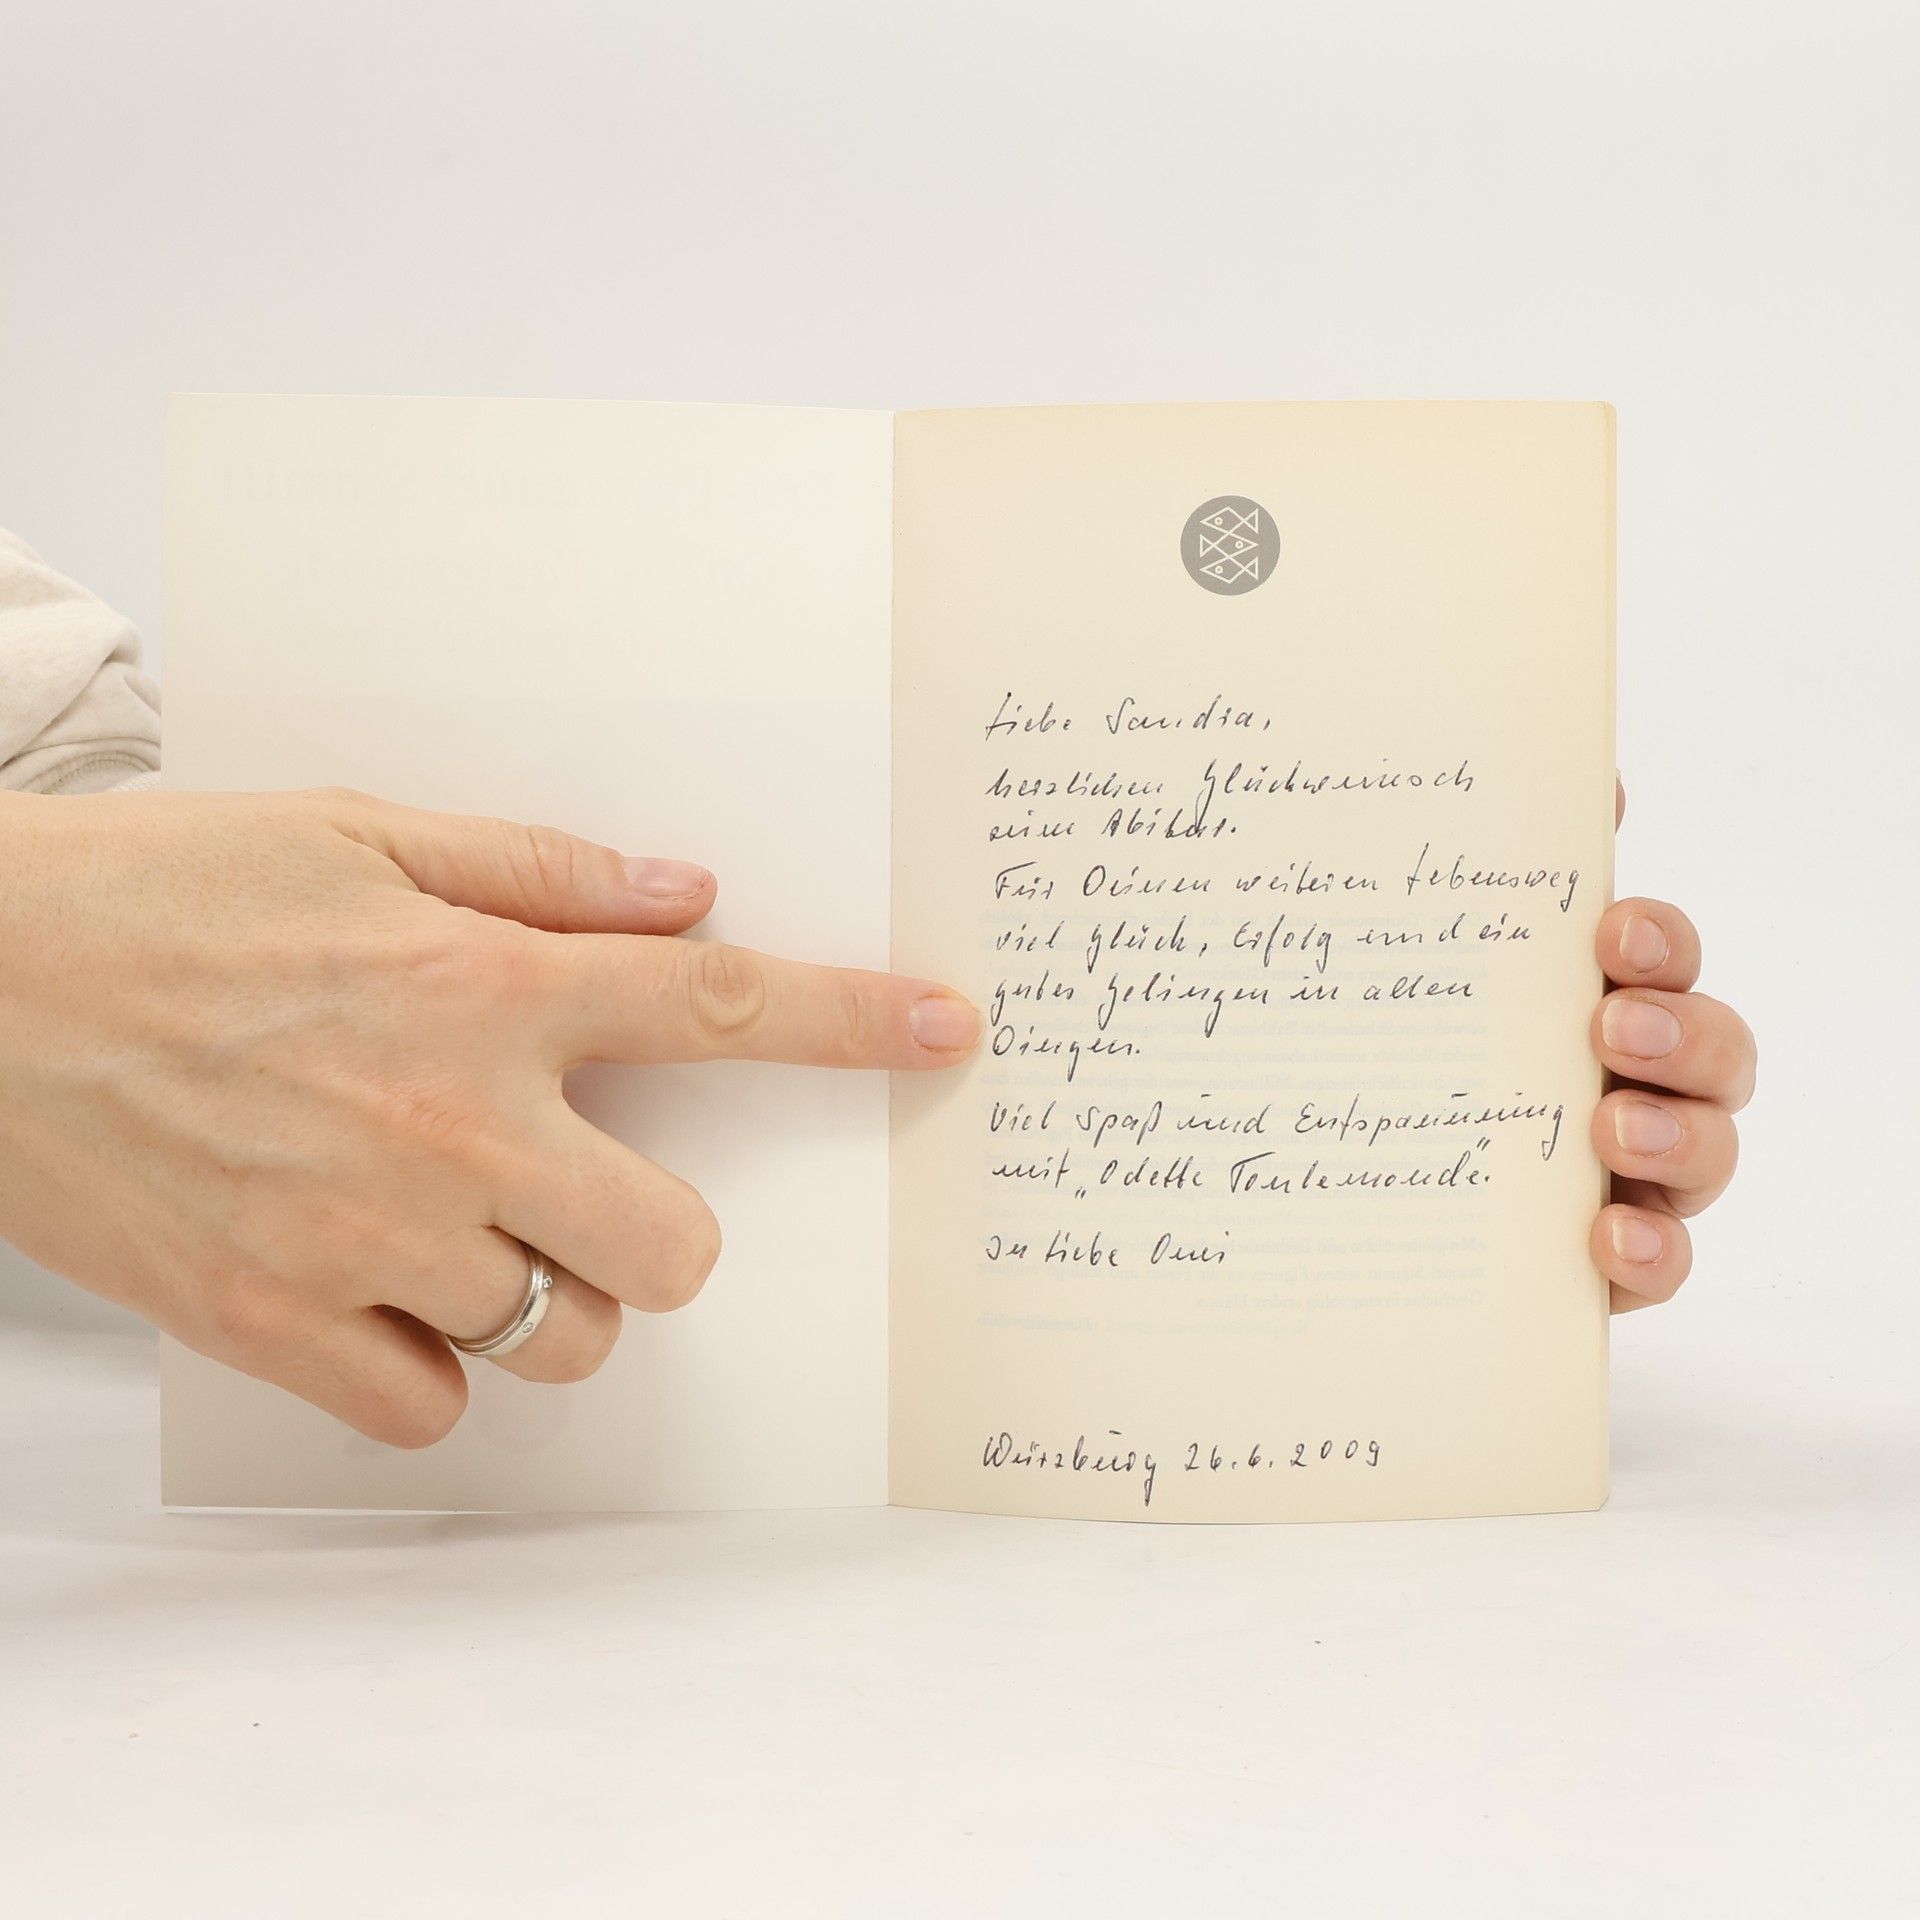 Liebe Sandra,
herzlichen Glückwunsch
zum Abitur.
Für Deinen weiteren Lebensweg
viel Glück, Erfolg und ein
gutes Gelingen in allen
Dingen.
Viel Spaß und Entspannung
mit „Odette Toulemonde".
In Liebe Omi
Würzburg 26.6.2009